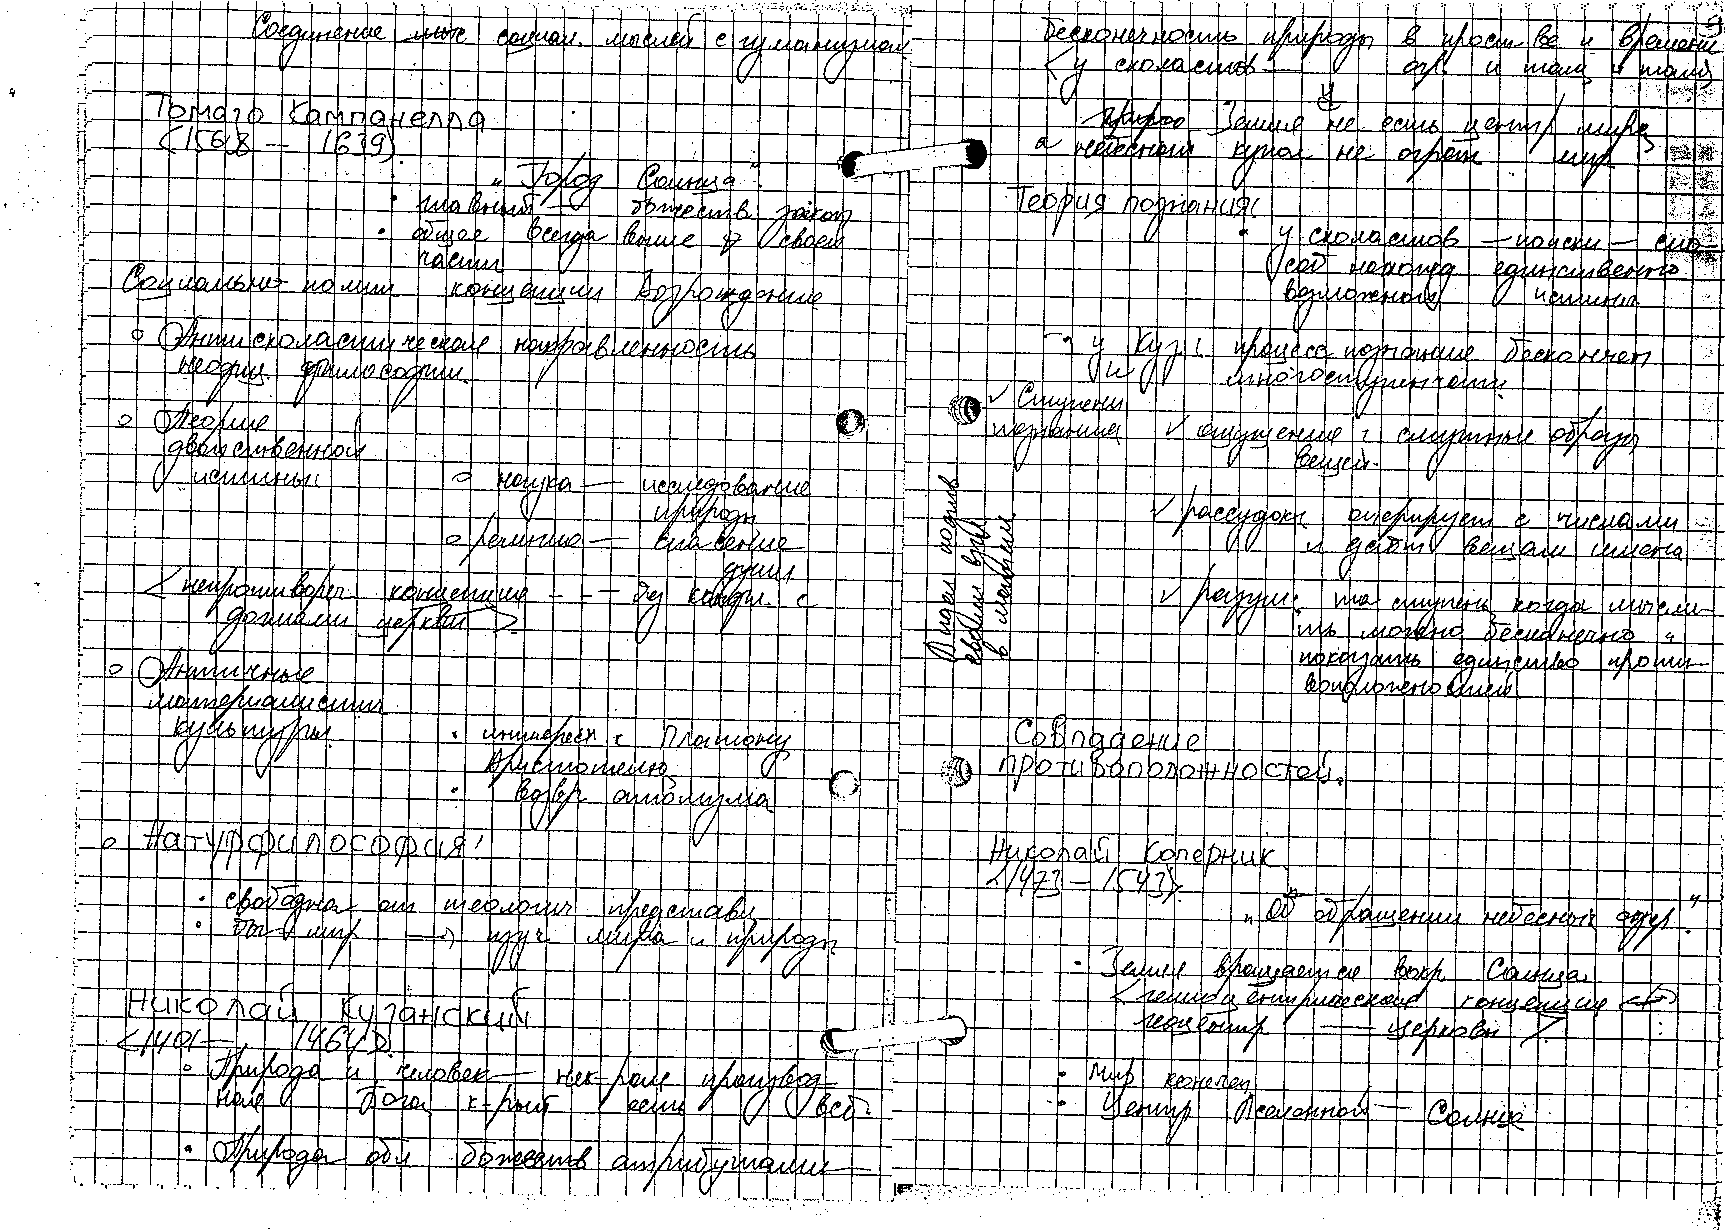 Соединение социал. мыслей с гуманизмом
Томазо Кампанелла
<1568 — 1639>
"Город Солнца".
• главный — божеств закон
• общее всегда выше своей
части
Социально-полит концепции Возрождение
о Антисхоластическое направленность
философии.
о Теория
двойственной
истины
о наука — исследование
природы
о религия — спасение
души
<непротивореч концепции --- без конфл. с
догмами церкви>
о Античные
материалистич
культуры.
• интерес к Платону
Аристотелю
• возвр атомизма
о Натурфилософия!
• свободна от теологич представ
• мир —> изуч мира и природы
Николай Кузанский
<1401 — 1464>.
• Природа и человек — нек-рое производ-
ное бога, к-рый есть всё.
• Природа обл божеств атрибутами —
9
бесконечность природы в прост-ве и времени
<у схоластов — огр. и там и там>
Земля не есть центр мира
а небесный купол не огран мир
Теория познания:
• у схоластов — поиски — спо-
соб нахожд единственно
возможной истины
• у Куз: процесс познание бесконечен
и многоступенчат.
✓ Ступени
познания
✓ ощущение: смутные образы
вещей.
✓ рассудок: оперирует с числами
и даёт вещам имена
✓ разум: та ступень когда мысли-
ть можно бесконечно и
показать единство проти-
воположностей
Совпадение
противоположностей.
Николай Коперник
<1473 — 1543>.
"Об обращении небесных сфер".
• Земля вращается вокр Солнца.
<гелиоцентрическое концепция <—>
геоцентр — церковь>.
• Мир конечен
• Центр Вселенной — Солнце